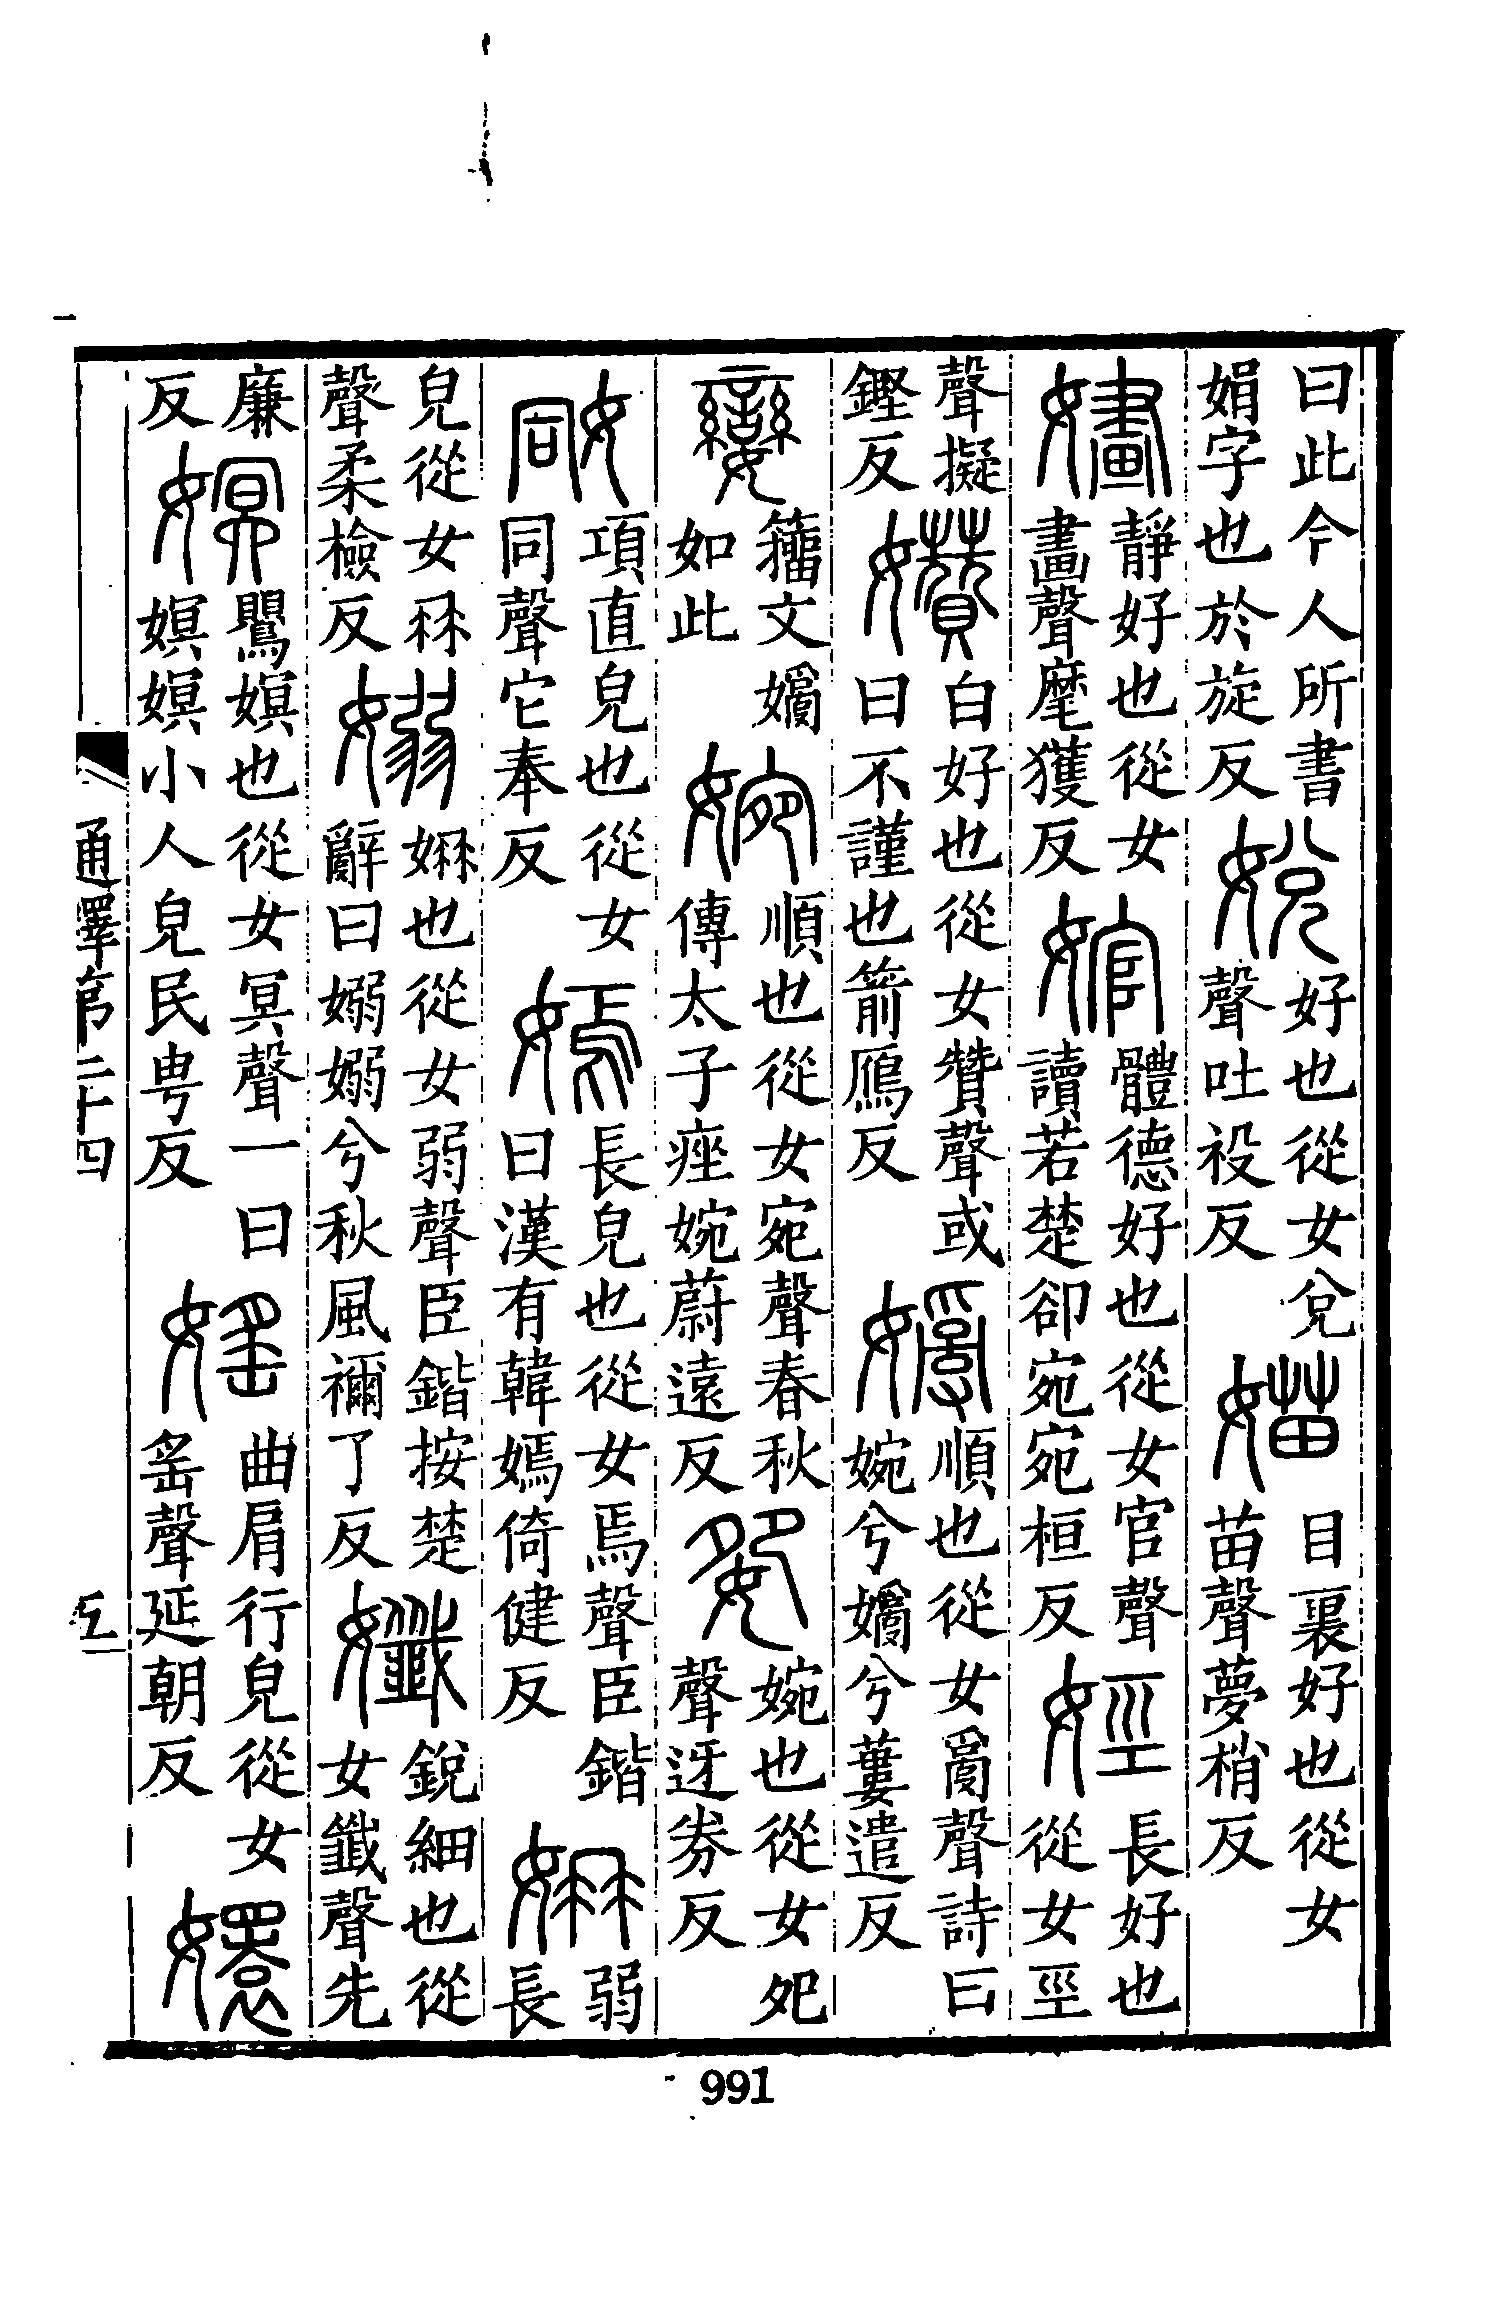 曰此今人所書娟字也於旋反 娧 好也從女兌聲吐祋反 媌 目裏好也從女苗聲夢梢反
嫿 靜好也從女畫聲麾獲反 婠 體德好也從女官聲讀若楚卻宛宛桓反 娙 長好也從女巠
聲擬鏗反 㜺 白好也從女贊聲或曰不謹也箭鴈反 𡡗 順也從女𤔔聲詩曰婉兮𡡗兮蔞遣反
孌 籀文𡡗如此 婉 順也從女宛聲春秋傳太子痤婉蔚遠反 㛂 婉也從女夗聲迓券反
姛 項直皃也從女同聲它奉反 嫣 長皃也從女焉聲臣鍇曰漢有韓嫣倚健反 姌 弱長
皃從女冄聲柔檢反 嫋 姌也從女弱聲臣鍇按楚辭曰嫋嫋兮秋風禰了反 孅 銳細也從女韱聲先
廉反 嫇 嬰嫇也從女冥聲一曰嫇嫇小人皃民甹反 媱 曲肩行皃從女䍃聲延朝反 嬛
通釋第二十四
991